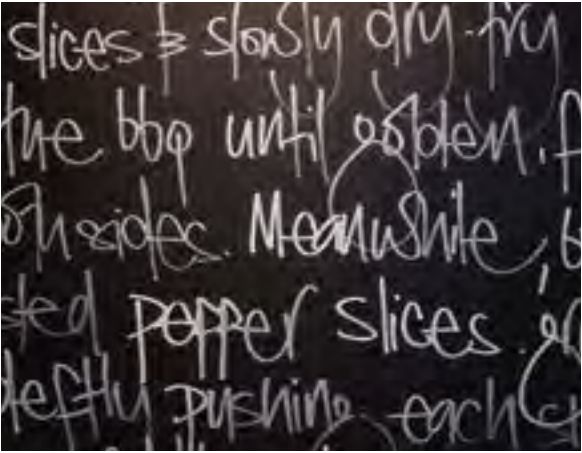 slices & slowly dry-fry
the bbq until golden,
sides. Meanwhile,
pepper slices.
deftly pushing each